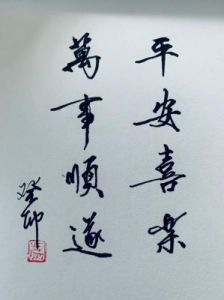 平安喜樂
萬事順遂
癸卯